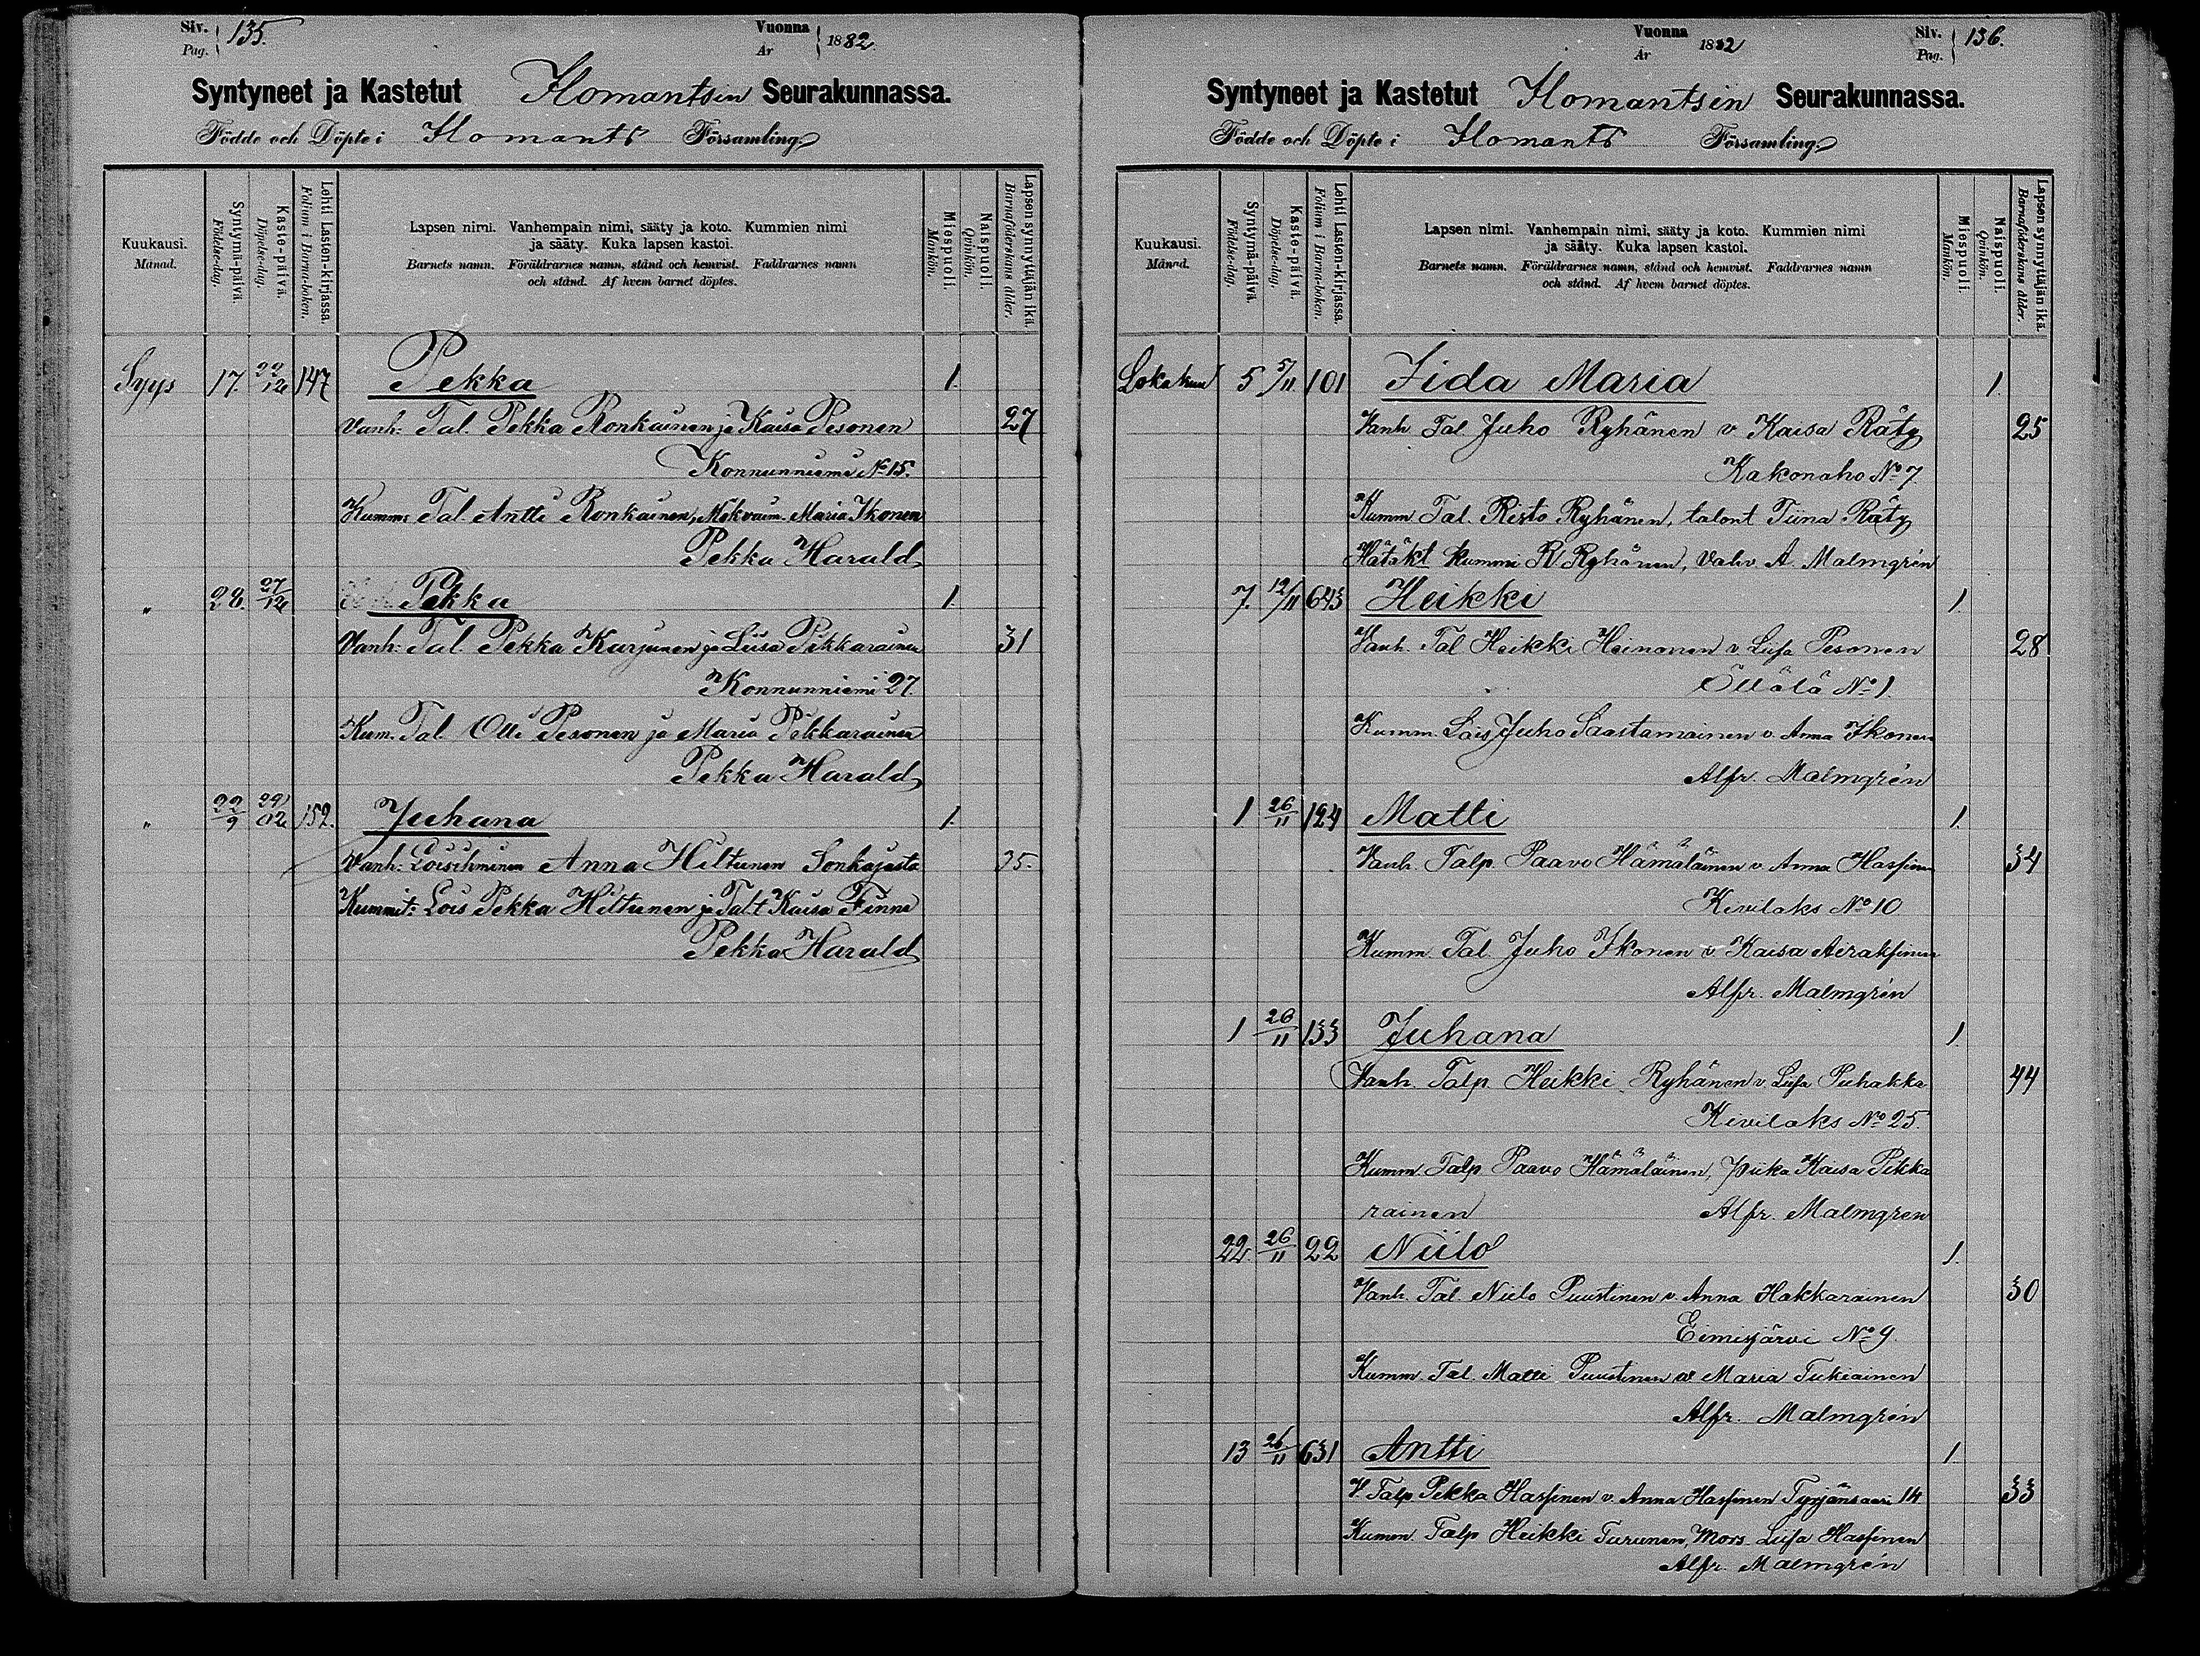 Siv. Pag. 135.
Vuonna År 1882
Syntyneet ja Kastetut Ilomantsin Seurakunnassa.
Födde och Döpte i Ilomants Församling
Kuukausi. Månad.
Syntymä-päivä. Födelse-dag.
Kaste-päivä. Döpelse-dag.
Lehti Lasten-kirjassa. Folium i Barna-boken.
Lapsen nimi. Vanhempain nimi, sääty ja koto. Kummien nimi
ja sääty. Kuka lapsen kastoi.
Barnets namn. Föräldrarnes namn, stånd och hemvist. Faddrarnes namn
och stånd. Af hvem barnet döptes.
Miespuoli. Mankön.
Naispuoli. Qvinkön.
Lapsen synnyttäjän ikä. Barnaföderskans ålder.
Syys 17. 147 Pekka 1.
Vanh: Tal. Pekka Ronkainen ja Kaisa Pesonen 27
Konnunniemi No 15.
Kumm: Tal. Antti Ronkainen, Maria Ikonen
Pekka Harald
" 28. 27/12 Pekka 1.
Vanh: Tal. Pekka Karjunen ja Liisa Pekkarainen 31
Konnunniemi 27.
Kum. Tal. Olli Pesonen ja Maria Pekkarainen
Pekka Harald
" 22/9 29/12 152. Juhana 1.
Vanh: Anna Hiltunen Sonkajasta 35.
Kummit: Lois Pekka Hiltunen ja Talt Kaisa
Pekka Harald
Vuonna År 1882
Siv. Pag. 136.
Syntyneet ja Kastetut Ilomantsin Seurakunnassa.
Födde och Döpte i Ilomants Församling
Kuukausi. Månad.
Syntymä-päivä. Födelse-dag.
Kaste-päivä. Döpelse-dag.
Lehti Lasten-kirjassa. Folium i Barna-boken.
Lapsen nimi. Vanhempain nimi, sääty ja koto. Kummien nimi
ja sääty. Kuka lapsen kastoi.
Barnets namn. Föräldrarnes namn, stånd och hemvist. Faddrarnes namn
och stånd. Af hvem barnet döptes.
Miespuoli. Mankön.
Naispuoli. Qvinkön.
Lapsen synnyttäjän ikä. Barnaföderskans ålder.
Lokakuu 5 5/11 101 Iida Maria 1.
Vanh Tal Juho Ryhänen v Kaisa Räty 25
Kakonaho No 7
Kumm. Tal. Risto Ryhänen, talont Tiina Räty
Hätäkt kummi R Ryhänen, Vahv. A. Malmgrén
7. 12/11 643 Heikki 1
Vanh. Tal Heikki Heinonen v Liisa Pesonen 28
Öllölä No 1.
Kumm. Lois Juho Saastamoinen v. Anna Ikonen
Alfr. Malmgrén
1 26/11 124 Matti 1.
Vanh. Talp. Paavo Hämäläinen v. Anna Hassinen 34
Kivilaks No 10
Kumm. Tal. Juho Ikonen v. Kaisa Aeraksinen
Alfr. Malmgrén
1 26/11 133 Juhana 1.
Vanh. Talp. Heikki Ryhänen v. Liisa Puhakka 44
Kivilaks No 25.
Kumm. Talp Paavo Hämäläinen, piika Kaisa Pekka
rainen Alfr. Malmgren
22. 26/11 22 Niilo 1.
Vanh. Tal. Niilo Puustinen v. Anna Hakkarainen 30
Eimisjärvi No 9.
Kumm. Tal. Matti Puustinen v Maria Tukiainen
Alfr. Malmgrén
13 26/11 631 Antti 1
V. Talp Pekka Hassinen v. Anna Hassinen Tyrjänsaari 14 33
Kumm. Talp Heikki Turunen, Mors. Liisa Hassinen
Alfr. Malmgrén